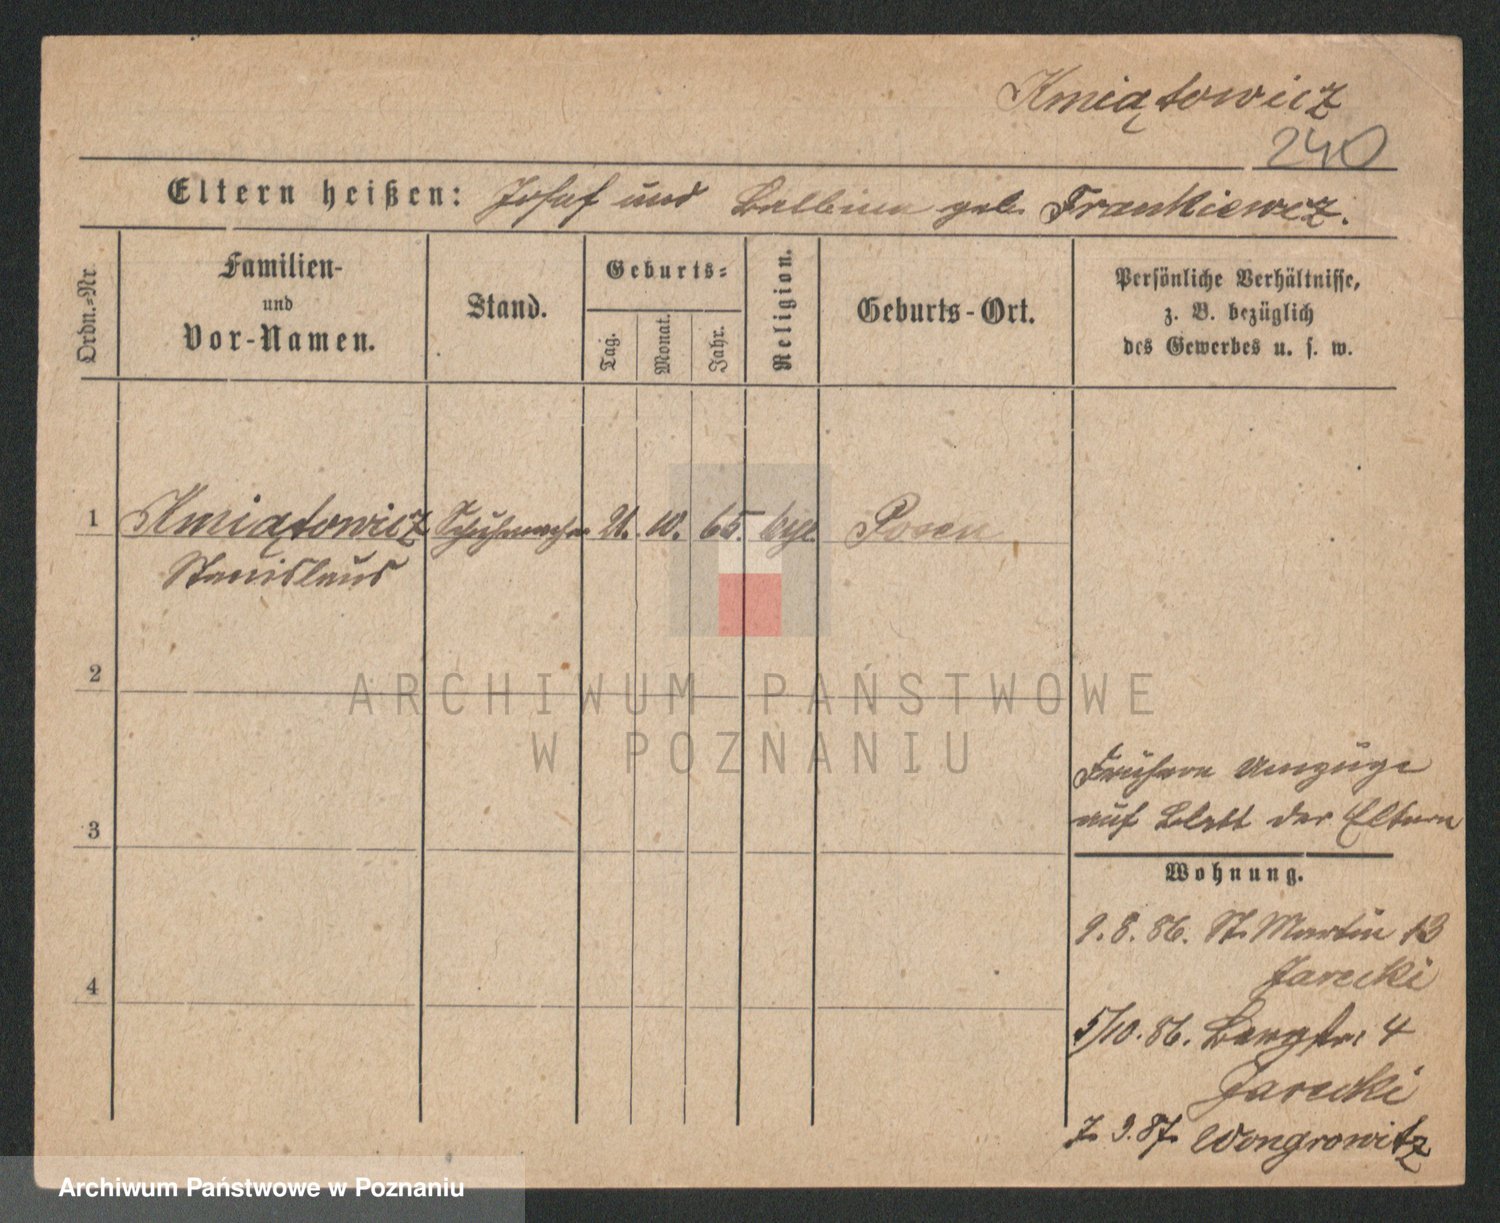 Kmiątowicz
240
Eltern heißen: Josef und Balbina geb. Frankiewicz.
Ordn.=Nr.
Familien-
und
Vor-Namen.
Stand.
Geburts=
Tag.
Monat.
Jahr.
Religion.
Geburts-Ort.
Persönliche Verhältnisse,
z. B. bezüglich
des Gewerbes u. s. w.
1 Kmiątowicz Schuhmacher 21. 10. 65. Posen
Stanislaus
2
ARCHIWUM PAŃSTWOWE
W POZNANIU
Frühere Umzüge
auf Blatt der Eltern
3
Wohnung.
9.8.86. St. Martin 13
Jarecki
4
5/10.86. Bergstr. 4
Jarecki
7. 9. 87. Wongrowitz
Archiwum Państwowe w Poznaniu